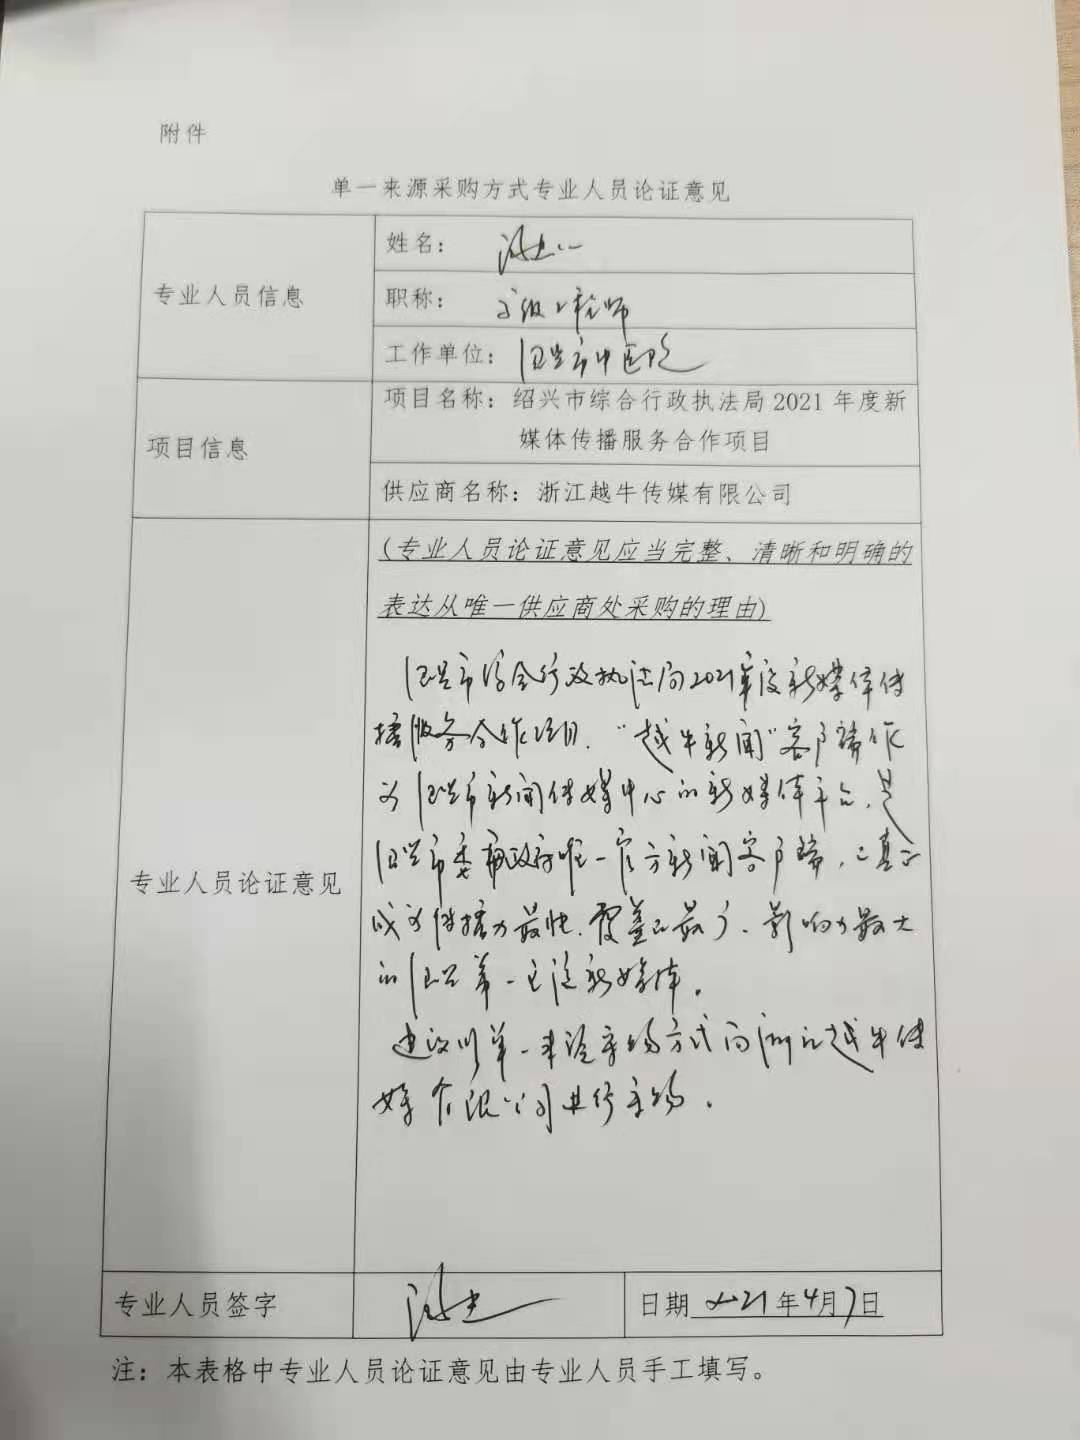 附件
单一来源采购方式专业人员论证意见
专业人员信息
姓名：
职称：高级工程师
工作单位：绍兴市中医院
项目信息
项目名称：绍兴市综合行政执法局2021年度新
媒体传播服务合作项目
供应商名称：浙江越牛传媒有限公司
专业人员论证意见
(专业人员论证意见应当完整、清晰和明确的
表达从唯一供应商处采购的理由)
绍兴市综合行政执法局2021年度新媒体传
播服务合作项目，“越牛新闻”客户端作
为绍兴市新闻传媒中心的新媒体平台，是
绍兴市委市政府唯一官方新闻客户端，已真正
成为传播力最快、覆盖面最广、影响力最大
的绍兴第一主流新媒体。
建议以单一来源采购方式向浙江越牛传
媒有限公司进行采购。
专业人员签字
日期 2021年4月7日
注：本表格中专业人员论证意见由专业人员手工填写。